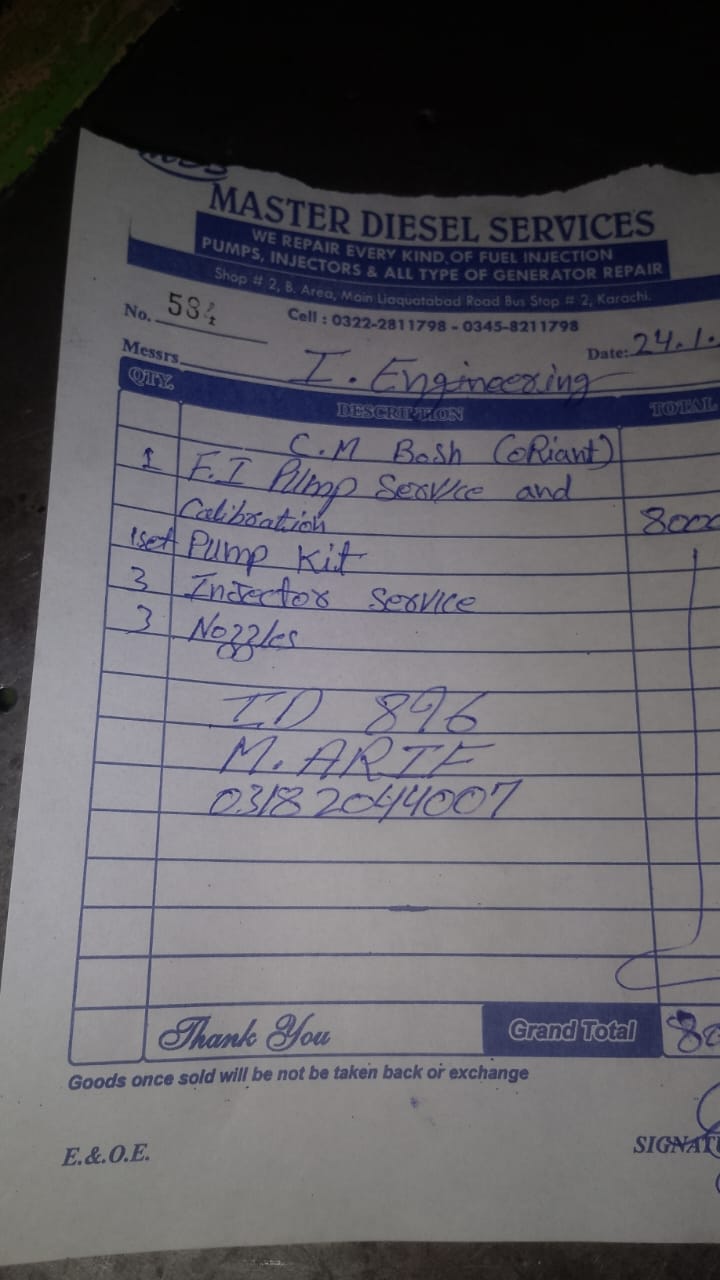 MASTER DIESEL SERVICES
WE REPAIR EVERY KIND OF FUEL INJECTION
PUMPS, INJECTORS & ALL TYPE OF GENERATOR REPAIR
Shop # 2, B. Area, Main Liaquatabad Road Bus Stop # 2, Karachi.
Cell : 0322-2811798 - 0345-8211798
No. 584
Date: 24.1.
Messrs. I. Engineering
QTY. DESCRIPTION TOTAL
C.M Bosh (oRiant)
1 F.I Pump Service and
Calibration 8000
1set Pump Kit
3 Injector Service
3 Nozzles
ID 896
M. ARIF
03182044007
Thank You Grand Total 80
Goods once sold will be not be taken back or exchange
E.&.O.E. SIGNATU